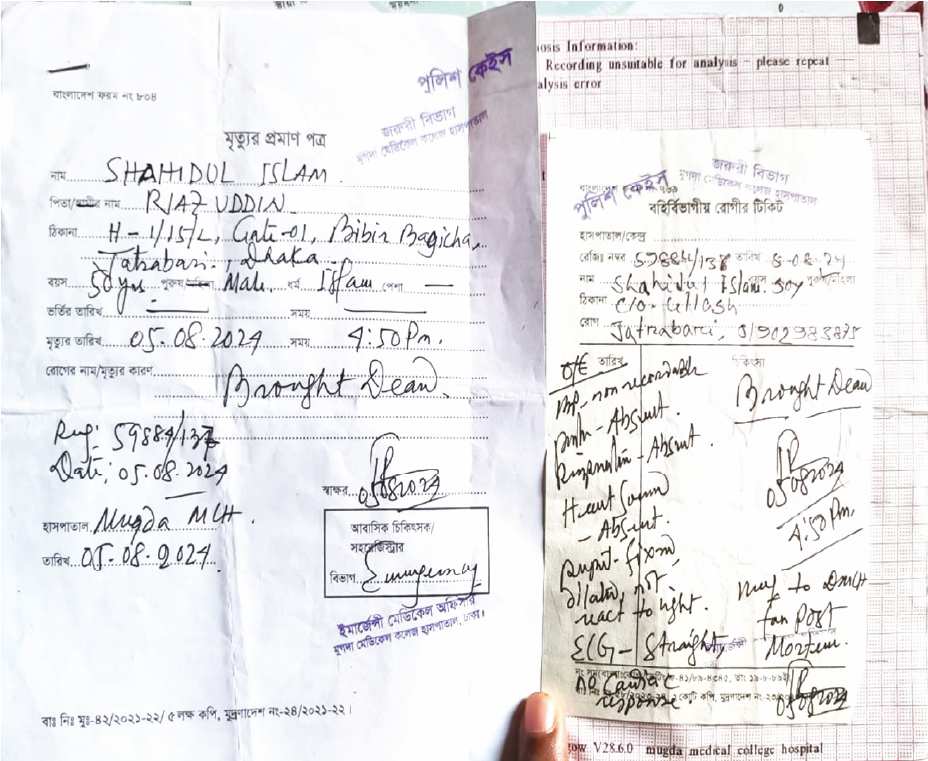 পুলিশ কেইস
বাংলাদেশ ফরম নং ৮০৪
জরুরী বিভাগ
মুগদা মেডিকেল কলেজ হাসপাতাল
মৃত্যুর প্রমাণ পত্র
নাম SHAHIDUL ISLAM.
পিতা/স্বামীর নাম RIAZ UDDIN
ঠিকানা H-1/15/L, Gate-01, Bibir Bagicha,
Jatrabari, Dhaka
বয়স 50yrs পুরুষ/মহিলা Male, ধর্ম Islam পেশা —
ভর্তির তারিখ — সময় —
মৃত্যুর তারিখ 05.08.2024 সময় 4:50 Pm.
রোগের নাম/মৃত্যুর কারণ
Brought Dead.
Reg: 59884/137
Date: 05.08.2024
স্বাক্ষর 05082024
হাসপাতাল Mugda MCH.
তারিখ 05.08.2024
আবাসিক চিকিৎসক/
সহরেজিস্ট্রার
বিভাগ Emergency
ইমার্জেন্সী মেডিকেল অফিসার
মুগদা মেডিকেল কলেজ হাসপাতাল, ঢাকা।
বাঃ নিঃ মুঃ-৪২/২০২১-২২/ ৫ লক্ষ কপি, মুদ্রণাদেশ নং-২৪/২০২১-২২।
osis Information:
Recording unsuitable for analysis - please repeat
alysis error
জরুরী বিভাগ
মুগদা মেডিকেল কলেজ হাসপাতাল
পুলিশ কেইস
বহির্বিভাগীয় রোগীর টিকিট
হাসপাতাল/কেন্দ্র
রেজিঃ নম্বর 59884/137 তারিখ 5-08-24
নাম Shahidul Islam 50y পুরুষ/মহিলা
ঠিকানা C/O-
রোগ Jatrabari,
O/E তারিখ
চিকিৎসা
BP- non recordable
Brought Dead
Pulse- Absent.
Respiration- Absent.
Heart Sound
- Absent.
05082024
4:50 Pm.
Pupil- fixed,
dilated, not
react to light.
ECG- Straight,
No Cardiac
response.
Ref to DMCH
for Post
Mortem.
05082024
ow V28.6.0 mugda medical college hospital